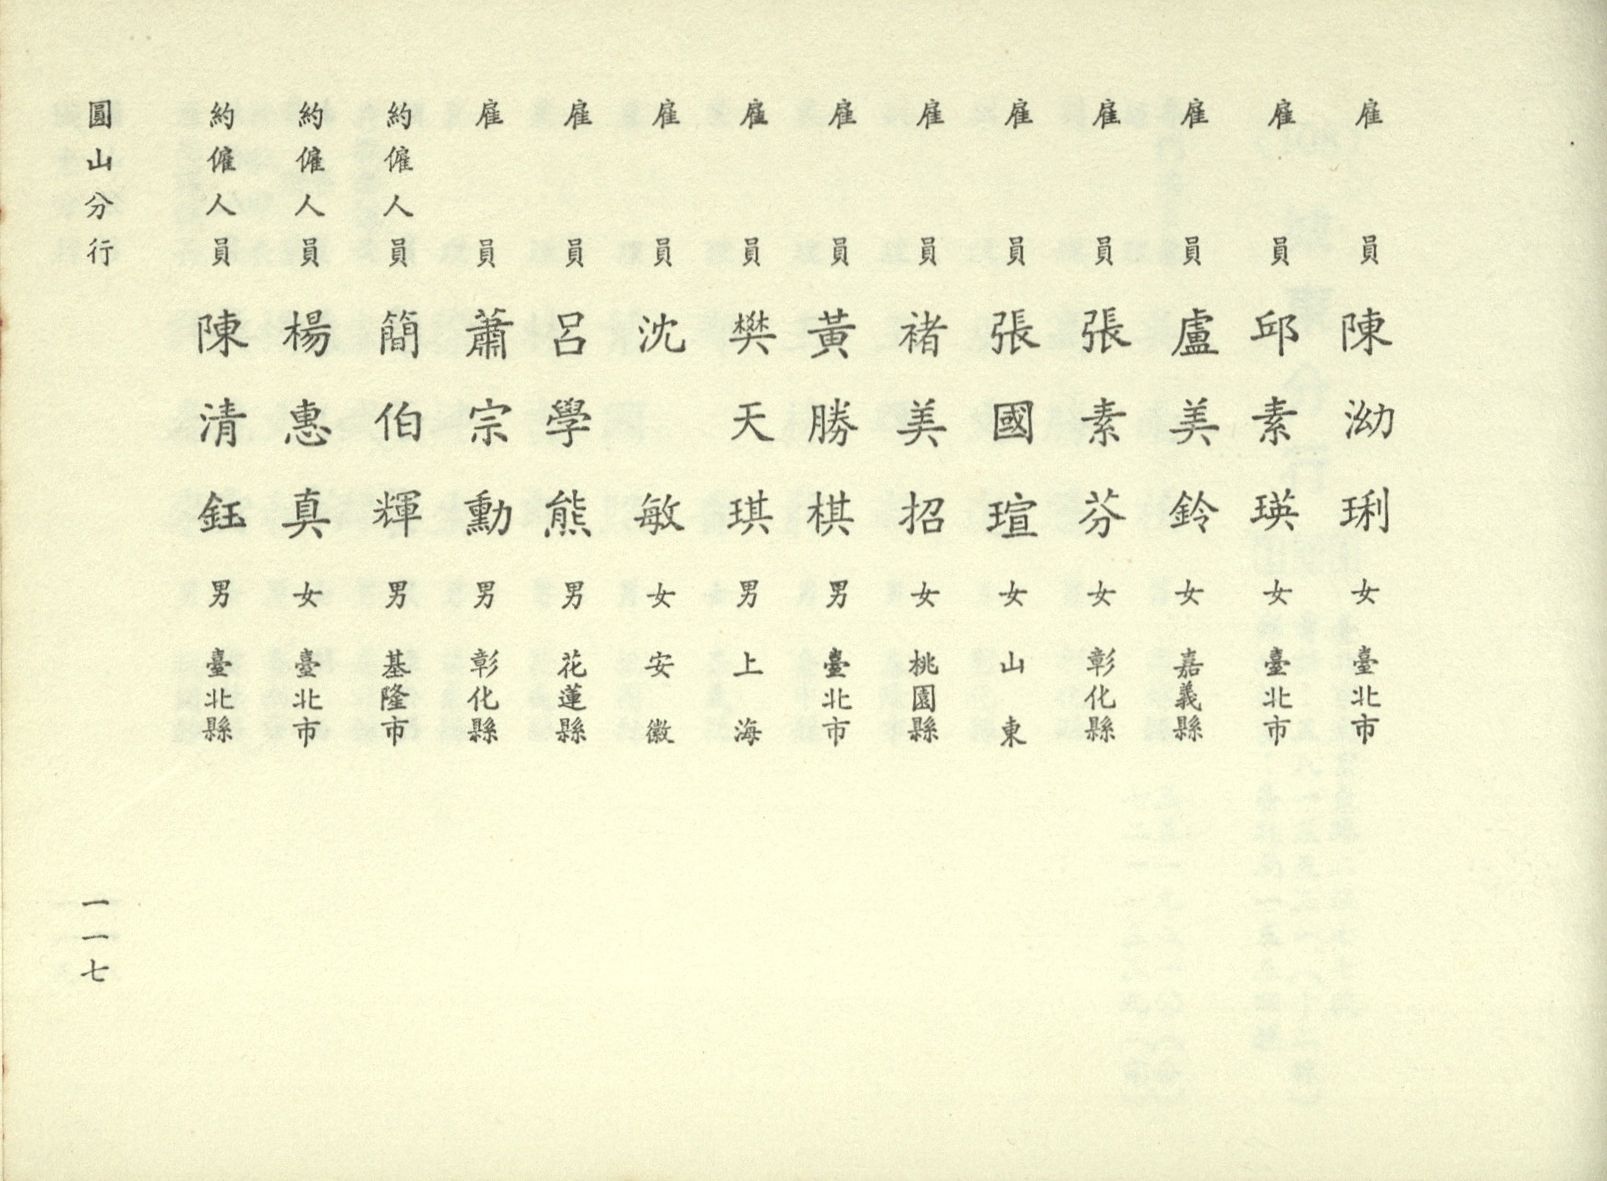 雇員 陳泑琍 女 臺北市
雇員 邱素瑛 女 臺北市
雇員 盧美鈴 女 嘉義縣
雇員 張素芬 女 彰化縣
雇員 張國瑄 女 山東
雇員 褚美招 女 桃園縣
雇員 黃勝棋 男 臺北市
雇員 樊天琪 男 上海
雇員 沈敏 女 安徽
雇員 呂學熊 男 花蓮縣
雇員 蕭宗勳 男 彰化縣
約僱人員 簡伯輝 男 基隆市
約僱人員 楊惠真 女 臺北市
約僱人員 陳清鈺 男 臺北縣
圓山分行 一一七